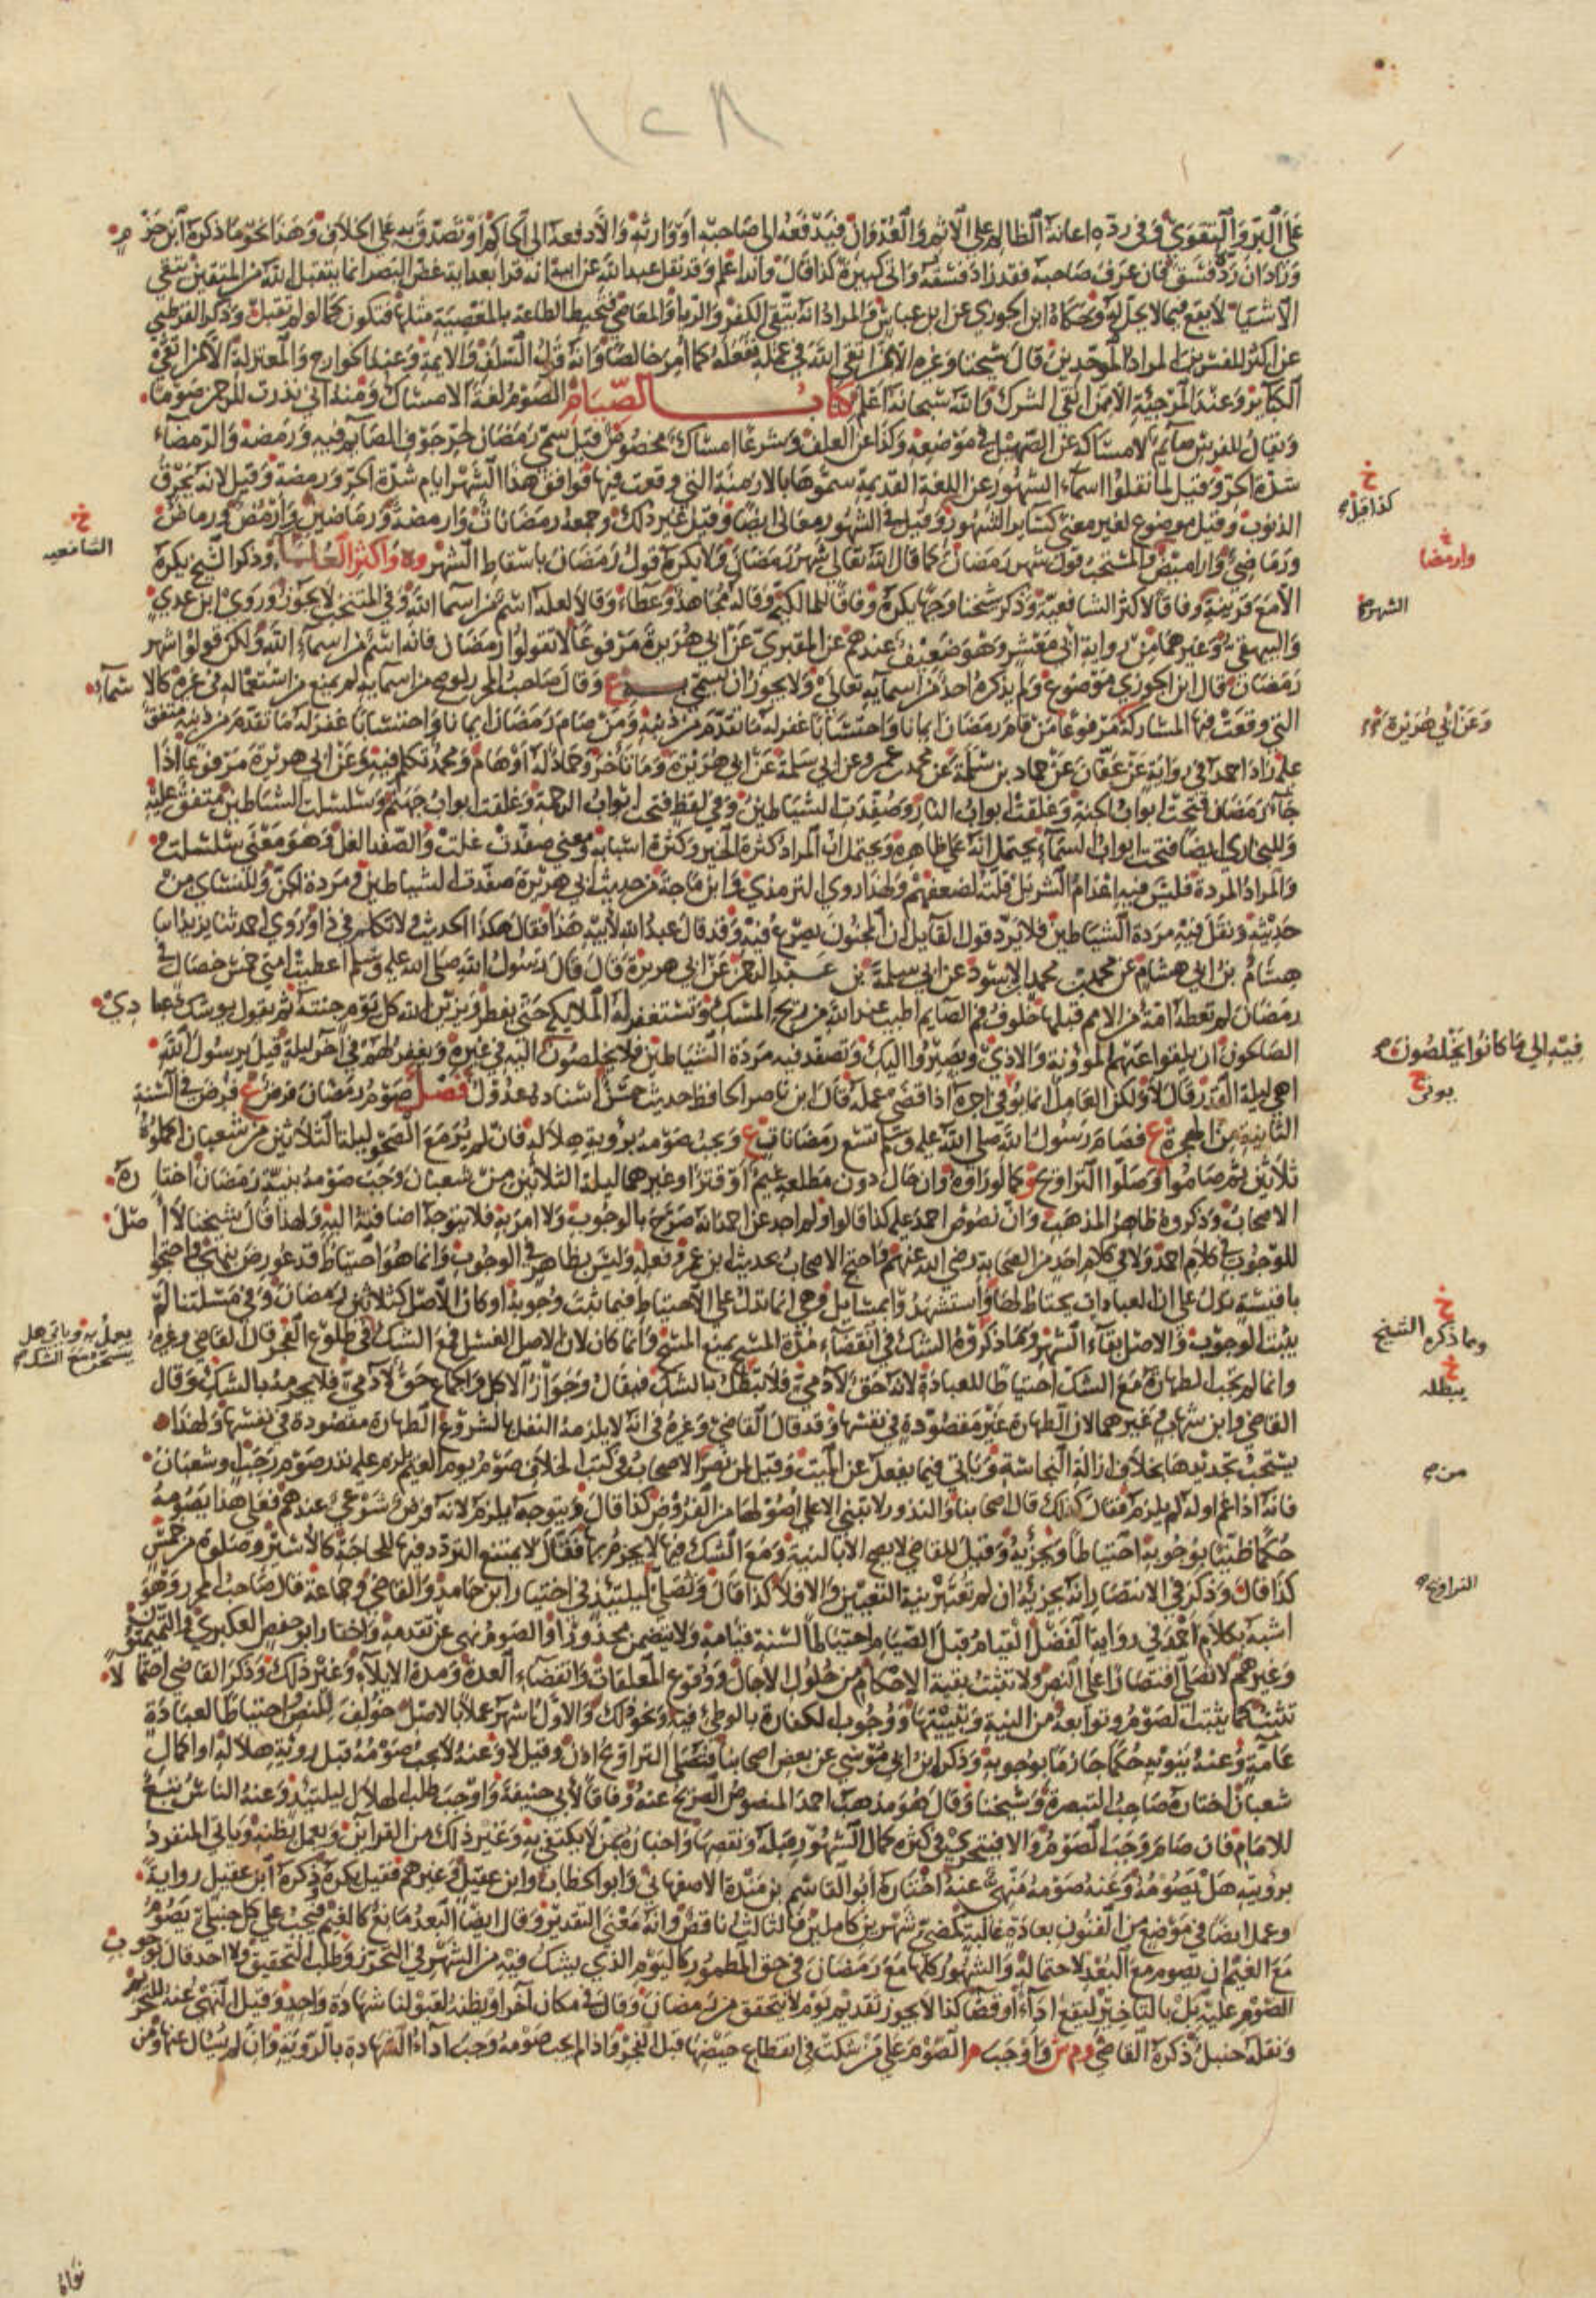 ١٢٨
على البر والتقوى وفي رده اعانة الظالم على الاثم والعدوان فيدفعه الى صاحبه او وارثه والا دفعه الى الحاكم او تصدق به على الخلاف وهذا نحو ما ذكره ابن حزم
وزاد ان رده فسق فان عرف صاحبه فقد زاد فسقه واتى كبيرة كذا قال والله اعلم وقد نقل عبد الله عن ابيه انه قرا بعد ايه غض البصر انما يتقبل الله من المتقين يتقي
الاشياء لا يقع فيما لا يحل له وحكاه ابن الجوزي عن ابن عباس والمراد انه يتقي الكفر والريا والمعاصي فتحبط الطاعة بالمعصية مثلها فتكون كما لو لم تقبل وذكر القرطبي
عن اكثر المفسرين المراد الموحدين قال شيخنا وغيره الامر اتقى الله في عمله ففعله كما امر خالصا وانه قول السلف والايمة وعند الخوارج والمعتزلة الا من اتقى
الكبائر وعند المرجئة الا من اتقى الشرك والله سبحانه اعلم كتاب الصيام الصوم لغة الامساك ومنه اني نذرت للرحمن صوما
ويقال للفرس صايم لامساكه عن الصهيل في موضعه وكذا عن العلف وشرعا امساك مخصوص قيل سمي رمضان لحر جوف الصايم فيه ورمضه والرمضاء
شدة الحر وقيل لما نقلوا اسماء الشهور عن اللغة القديمة سموها بالازمنة التي وقعت فيها فوافق هذا الشهر ايام شدة الحر ورمضه وقيل لانه يحرق
الذنوب وقيل موضوع لغير معنى كساير الشهور وقيل في الشهور معانى ايضا وقيل غير ذلك وجمعه رمضانات وارمضة ورماضين وارمض ورماض
ورماضى واراميض والمستحب قول شهر رمضان كما قال الله تعالى شهر رمضان ولا يكره قول رمضان باسقاط الشهر وه واكثر العلماء وذكر الشيخ يكره
الا مع قرينة وفاقا لاكثر الشافعية وذكر شيخنا وجها يكره وفاقا للمالكية وقاله مجاهد وعطاء وقالا لعله اسم من اسما الله وفي المنتخب لا يجوز وروى ابن عدي
والبيهقي وغيرهما من رواية ابي معشر وهو ضعيف عندهم عن المقبري عن ابي هريرة مرفوعا لا تقولوا رمضان فانه اسم من اسماء الله ولكن قولوا شهر
رمضان وقال ابن الجوزي موضوع ولم يذكره احد من اسمايه تعالى ولا يجوز ان يسمى به ع وقال صاحب المحرر لو صح من اسمايه لم يمنع من استعماله في غيره كالاسماء
التي وقعت فيها المشاركة مرفوعا من قام رمضان ايمانا واحتسابا غفر له ما تقدم من ذنبه ومن صام رمضان ايمانا واحتسابا غفر له ما تقدم من ذنبه متفق
عليه زاد احمد في رواية عن عفان عن حماد بن سلمة عن محمد بن عمرو عن ابي سلمة عن ابي هريرة وما تاخر وحماد له اوهام ومحمد تكلم فيه وعن ابي هريرة مرفوعا اذا
جاء رمضان فتحت ابواب الجنة وغلقت ابواب النار وصفدت الشياطين وفي لفظ فتحت ابواب الرحمة وغلقت ابواب جهنم وسلسلت الشياطين متفق عليه
وللبخاري ايضا فتحت ابواب السماء يحتمل انه على ظاهره ويحتمل ان المراد كثرة الخير وكثرة اسبابه ومعنى صفدت غلت والصفد الغل وهو معنى سلسلت
والمراد المردة فليس فيه اعدام الشر بل قلته لضعفهم ولهذا روى الترمذي وابن ماجة من حديث ابي هريرة صفدت الشياطين ومردة الجن وللنساي من
حديثه وتغل فيه مردة الشياطين فلا يرد قول القايل ان المجنون يصرع فيه وقد قال عبد الله لابيه هذا فقال هكذا الحديث ولا تكلم في ذا وروى احمد ثنا يزيد انبا
هشام بن ابي هشام عن محمد بن محمد الاسود عن ابي سلمة بن عبد الرحمن عن ابي هريرة قال قال رسول الله صلى الله عليه وسلم اعطيت امتي خمس خصال في
رمضان لم تعطه امة من الامم قبلها خلوف فم الصايم اطيب عند الله من ريح المسك وتستغفر له الملايكة حتى يفطر ويزين الله كل يوم جنته ثم يقول يوشك عبادي
الصالحون ان يلقوا عنهم المؤونة والاذى ويصيروا اليك وتصفد فيه مردة الشياطين فلا يخلصون اليه في غيره ويغفر لهم في آخر ليلة قيل يرسول الله
اهي ليلة القدر قال لا ولكن العامل انما يوفى اجره اذا قضى عمله قال ابن ناصر الحافظ حديث حسن اسناده عدول فصل صوم رمضان فرض ع فرض في السنة
الثانية من الهجرة ع فصام رسول الله صلى الله عليه وسلم تسع رمضانات ع ويجب صومه برؤية هلاله فان لم ير مع الصحو ليلة الثلاثين من شعبان اكملوه
ثلاثين ثم صاموا وصلوا التراويح و كما لو راوه وان حال دون مطلعه غيم او قتر او غيرهما ليلة الثلاثين من شعبان وجب صومه بنية رمضان اختاره
الاصحاب وذكروه ظاهر المذهب وان نصوص احمد عليه كذا قالوا ولم اجد عن احمد انه صرح بالوجوب ولا امر به فلا يتوجه اضافته اليه ولهذا قال شيخنا لا اصل
للوجوب في كلام احمد ولا في كلام احد من الصحابة رضي الله عنهم واحتج الاصحاب بحديث ابن عمر وفعله وليس بظاهر في الوجوب وانما هو احتياط قد عورض بنهي واحتجوا
باقيسة تدل على ان العبادات يحتاط لها واستشهدوا بمسايل وهي انما تدل على الاحتياط فيما ثبت وجوبه او كان الاصل كثلاثين رمضان وفي مسلتنا لم
يثبت الوجوب والاصل بقاء الشهر وما ذكروه الشك في انقضاء مدة المسح يمنع المسح وانما كان لان الاصل الغسل فمع الشك في طلوع الفجر قال القاضي وغيره
وانما لم يجب الطهارة مع الشك احتياطا للعبادة لانه حق لآدمي فلا تبطل بالشك فيقال وجواز الاكل والجماع حق لآدمي فلا يحرمه بالشك وقال
القاضي وابن شهاب وغيرهما لان الطهارة غير مقصودة في نفسها وقد قال القاضي وغيره في انه لا يلزمه النفل بالشروع الطهارة مقصودة في نفسها ولهذا
يستحب تجديدها بخلاف ازالة النجاسة وياتي فيما يفعل عن الميت وقيل لمن نصر الاصحاب في كتب الخلاف صوم يوم الغيم يلزم عليه نذر صوم رجب وشعبان
فانه اذا غم اوله لم يلزمه فقال كذلك قال اصحابنا والنذور لا تبنى الا على اصولها من الفروض كذا قال ويتوجه يلزمه لانه فرض شرعي عندهم فعلى هذا يصومه
حكما ظنيا بوجوبه احتياطا ويجزيه وقيل للقاضي لا يصح الا بالنية ومع الشك فيها لا يجزم بها فقال لا يمتنع التردد فيها للحاجة كالاسير وصلوة من خمس
كذا قال وذكر في الانتصار انه يجزيه ان لم تعتبر نية التعيين والا فلا كذا قال وتصلى ليلتئذ في اختيار ابن حامد والقاضي وجماعة قال صاحب المحرر وهو
اشبه بكلام احمد في رواية الفضل القيام قبل الصيام احتياطا لسنة قيامه ولا يتضمن محذورا والصوم نهى عن تقدمه واختار ابو حفص العكبري والتميميون
وغيرهم لا تصلى اقتصارا على النص ولا تثبت بقية الاحكام من حلول الاجال ووقوع المعلقات وانقضاء العدة ومدة الايلاء وغير ذلك وذكر القاضي احتمالا
تثبت كما يثبت الصوم وتوابعه من النية وتبييتها ووجوب الكفارة بالوطئ فيه ونحو ذلك والاول اشهر عملا بالاصل خولف للنص احتياطا لعبادة
عامة وعنه ينويه حكما جازما بوجوبه وذكره ابن ابي موسى عن بعض اصحابنا فتصلى التراويح اذن وقيل لا وعنه لا يجب صومه قبل رؤية هلاله او اكمال
شعبان اختاره صاحب التبصرة وشيخنا وقال هو مذهب احمد المنصوص الصريح عنه وفاقا لابي حنيفة واوجب طلب الهلال ليلتئذ وعنه الناس تبع
للامام فان صام وجب الصوم والا فيتحرى في كثره كمال الشهور قبله ونقصها واخباره بمن لا يكتفي به وغير ذلك من القراين ويعمل بظنه وياتي المنفرد
برؤيته هل يصومه وعنه صومه منهي عنه اختاره ابو القاسم بن مندة الاصفهاني وابو الخطاب وابن عقيل وغيرهم فقيل يكره وذكره ابن عقيل رواية
وعمل ايضا في موضع من الفنون بعادة غالبة كمضي شهرين كاملين فالثالث ناقص وانه معنى التقدير وقال ايضا البعد مانع كالغيم فيجب على كل حنبلي يصوم
مع الغيم ان يصوم مع البعد لاحتماله والشهور كلها مع رمضان في حق المطمور كاليوم الذي يشك فيه من الشهر في التحرز وطلب التحقيق ولا احد قال بوجوب
الصوم عليه بل بالتاخير ليقع اداء او قضا كذا لا يجوز تقديم يوم لا يتحقق من رمضان وقال في مكان آخر او يظنه لقبولنا شهادة واحد وقيل النهي عنه للتحريم
ونقله حنبل ذكره القاضي وم ش واوجب م الصوم على من شكت في انقطاع حيضها قبل الفجر واذا لم يجب صومه وجب اداء الشهادة بالروية وان لم يسال عنها ومن
خ
كذا قيل
خ
وارمضا
الشهر
وعن ابي هريرة
فيه الى ما كانوا يخلصون
يوفى
خ
وما ذكره الشيخ
خ
يبطله
من
التراويح
خ
الشافعيه
يعمل به وياتي هل
يتسحر مع الشك